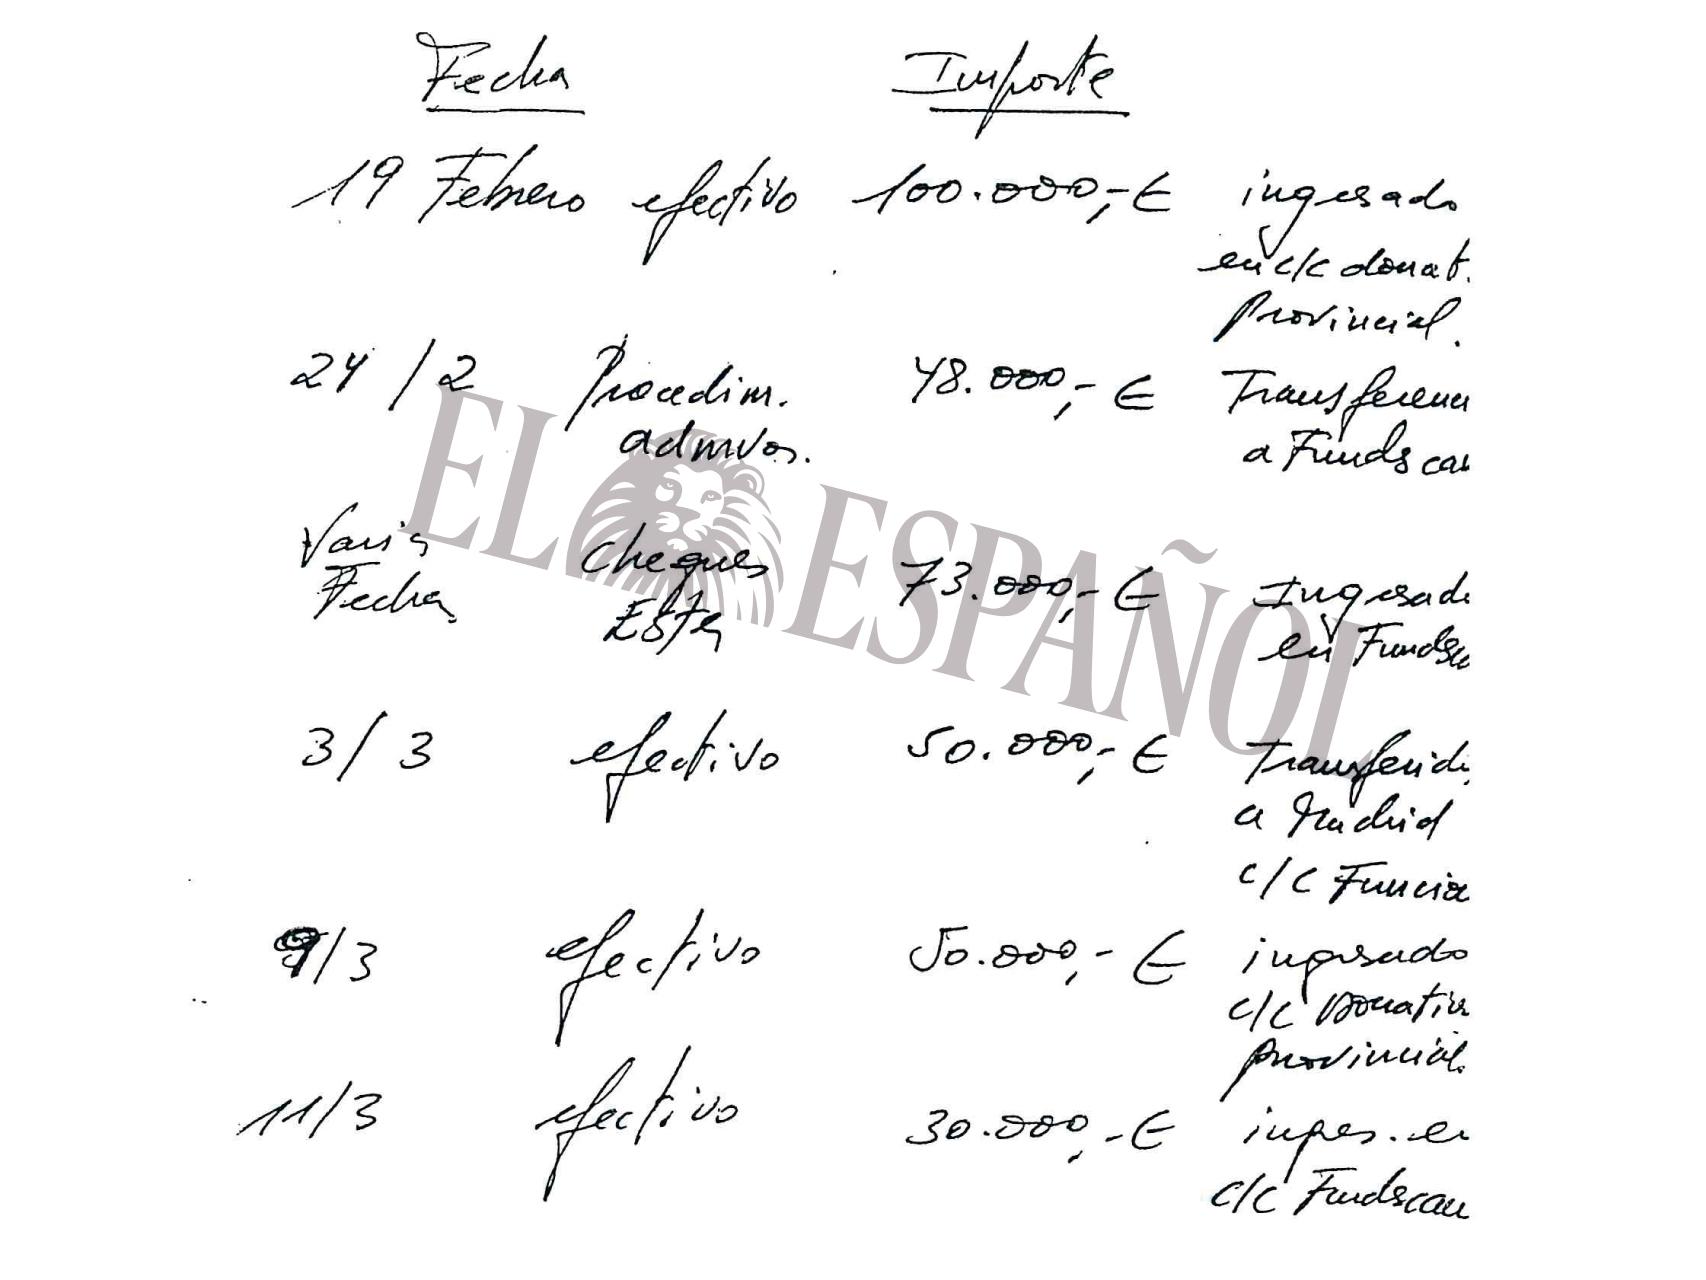 Fecha Importe
19 Febrero efectivo 100.000,-€ ingresado
en c/c donat.
Provincial.
24 / 2 Procedim. 48.000,-€ Transferenci
admvos. a Fundscan
EL ESPAÑOL
Varias cheques 73.000,-€ Ingresado
Fechas en Fundsca
3 / 3 efectivo 50.000,-€ Transferido
a Madrid
c/c Funcia
9/3 efectivo 50.000,-€ ingresado
c/c Donativ
provincial.
11/3 efectivo 30.000,-€ ingres. en
c/c Fundscan